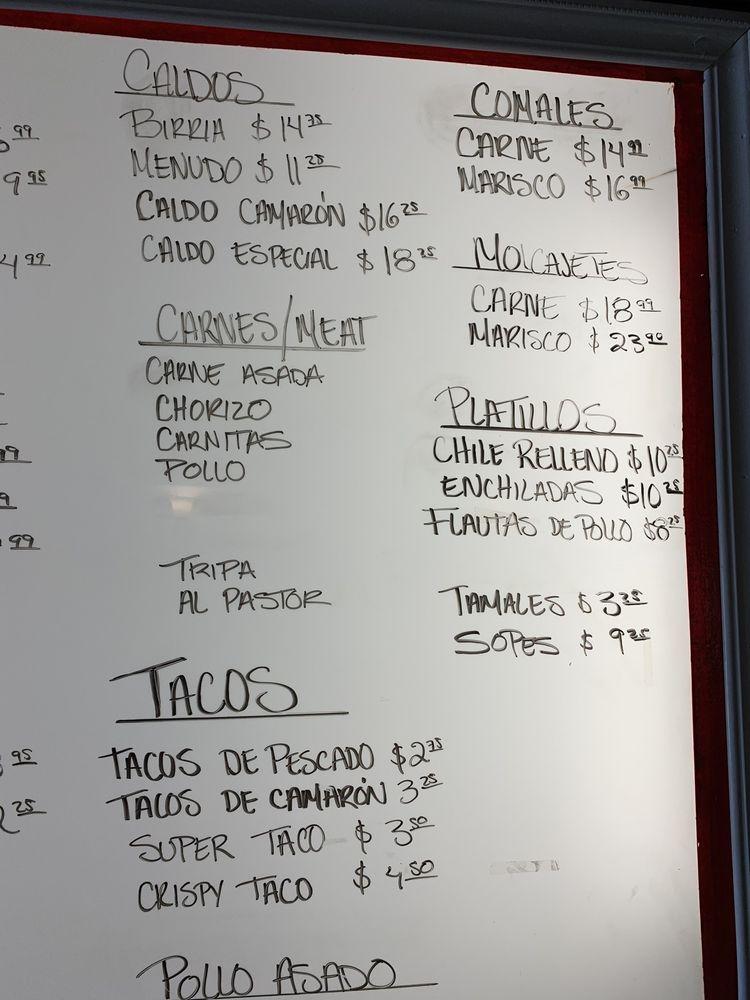 99
9 95
4 99
99
95
25
CALDOS
BIRRIA $14 25
MENUDO $11 25
CALDO CAMARÓN $16 25
CALDO ESPECIAL $18 25
CARNES/MEAT
CARNE ASADA
CHORIZO
CARNITAS
POLLO
TRIPA
AL PASTOR
TACOS
TACOS DE PESCADO $2 75
TACOS DE CAMARÓN 3 25
SUPER TACO $3 50
CRISPY TACO $4 50
POLLO ASADO
COMALES
CARNE $14 99
MARISCO $16 99
MOLCAJETES
CARNE $18 99
MARISCO $23 90
PLATILLOS
CHILE RELLENO $10 25
ENCHILADAS $10 25
FLAUTAS DE POLLO $8 25
TAMALES $3 25
SOPES $9 25